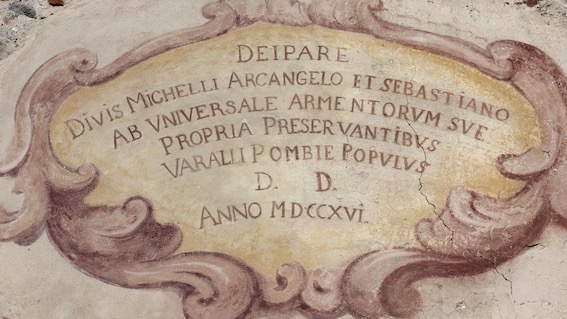 DEIPARE
DIVIS MICHELLI ARCANGELO ET SEBASTIANO
AB VNIVERSALE ARMENTORVM SVE
PROPRIA PRESERVANTIBVS
VARALLI POMBIE POPVLVS
D. D.
ANNO MDCCXVI.